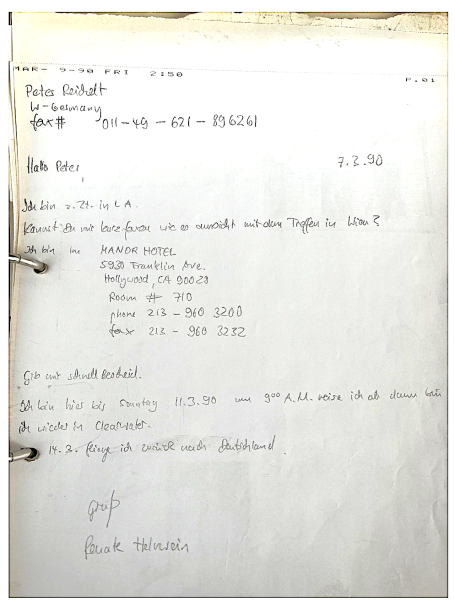 MAR- 9-90 FRI 2:50 P.01
Peter Reichelt
W-Germany
fax# 011-49-621-896261
Hallo Peter 7.3.90
Ich bin z.Zt. in L.A.
Kannst Du mir kurz faxen wie es aussieht mit dem Treffen in Wien?
Ich bin im MANOR HOTEL
5930 Franklin Ave.
Hollywood, CA 90028
Room # 710
phone 213-960 3200
fax 213-960 3232
Gib mir schnell Bescheid.
Ich bin hier bis Sonntag 11.3.90 um 9⁰⁰ A.M. reise ich ab dann bin
ich wieder in Clearwater.
14.3. fliege ich zurück nach Deutschland
Gruß
Renate